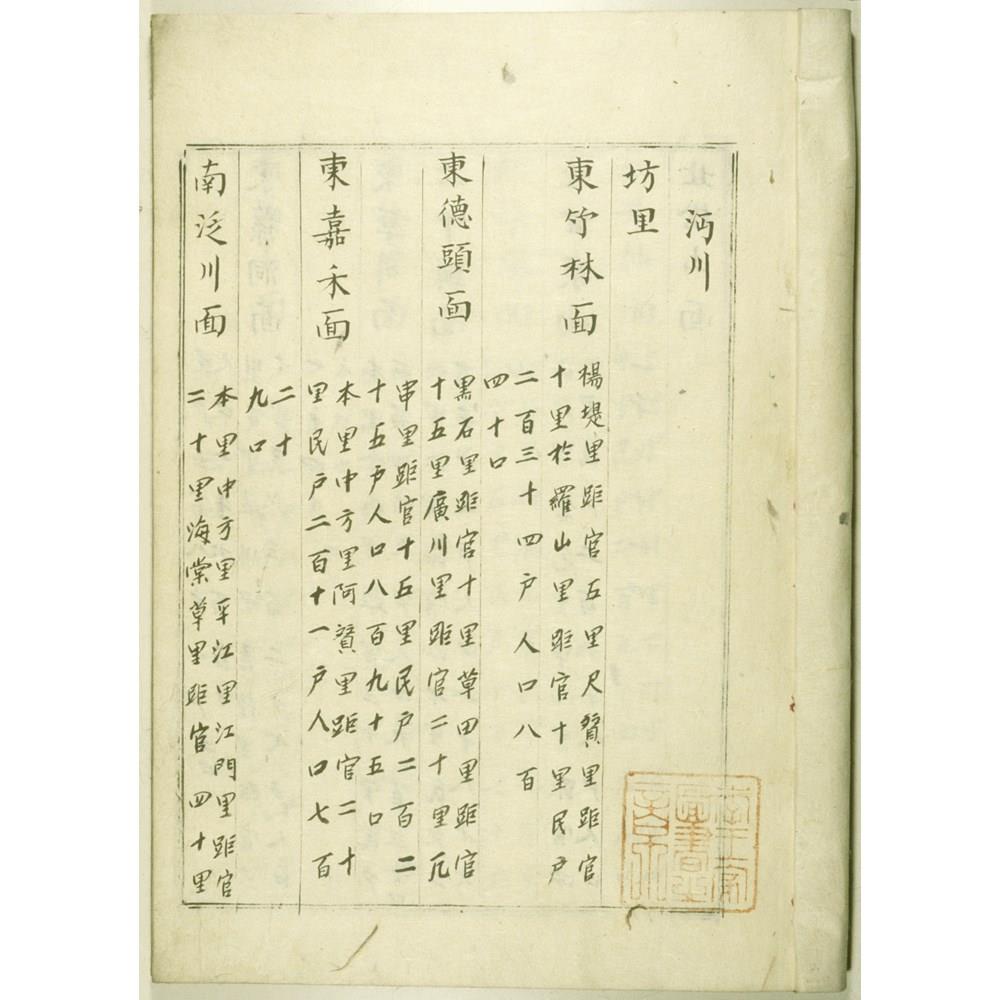 沔川
坊里
東竹林面
楊堤里距官五里尺贇里距官
十里於羅山里距官十里民戶
二百三十四戶人口八百
四十口
東德頭面
黑石里距官十里草田里距官
十五里廣川里距官二十里瓦
串里距官十五里民戶二百二
十五戶人口八百九十五口
東嘉禾面
本里中方里阿贇里距官二十
里民戶二百十一戶人口七百
二十
九口
南泛川面
本里中方里平江里江門里距官
二十里海棠草里距官四十里